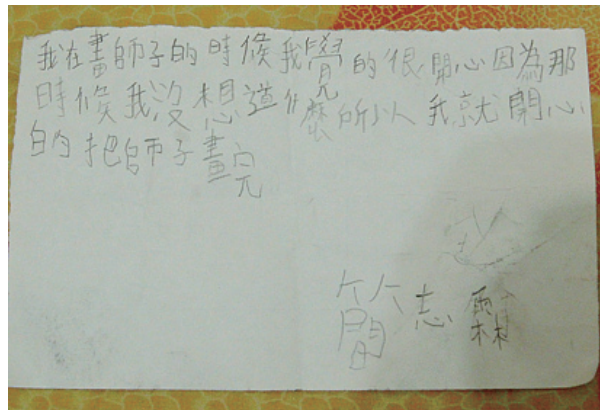 我在畫師子的時候我覺的很開心因為那
時候我沒想道什麼所以我就開心
的把師子畫完
簡志霖